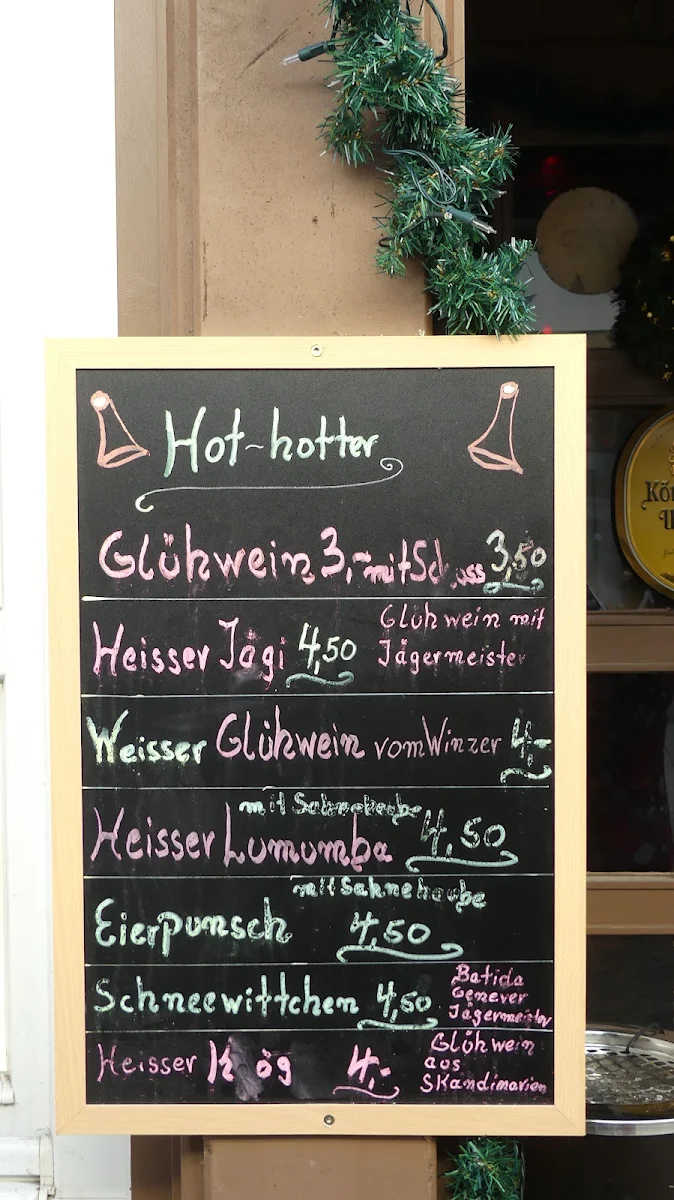 Hot~hotter
Glühwein 3,- mit 3,50
Heisser Jagi 4,50 Glühwein mit
Jägermeister
Weisser Glühwein vom Winzer 4,-
mit Sahnehaube
Heisser Lumumba 4,50
mit Sahnehaube
Eierpunsch 4,50
Schneewittchen 4,50 Batida
Genever
Jägermeister
Heisser 4,- Glühwein
aus
Skandinavien
Kö